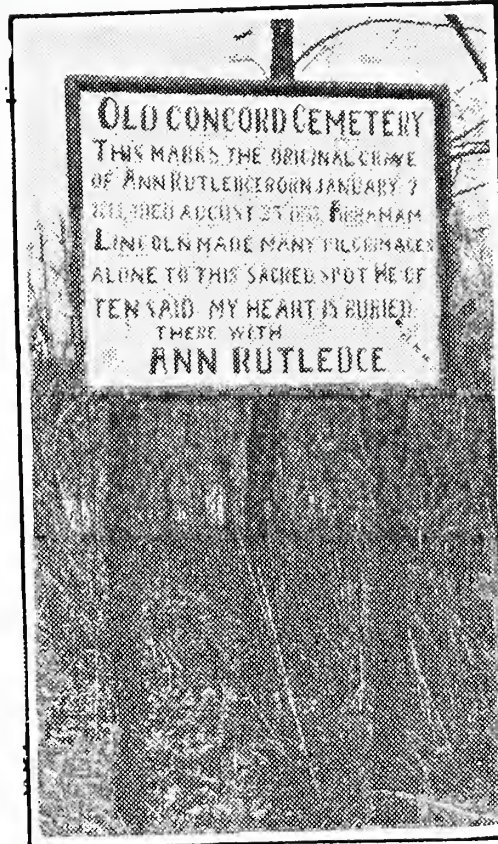 OLD CONCORD CEMETERY
THIS MARKS THE ORIGINAL GRAVE
OF ANN RUTLEDGE BORN JANUARY 7
DIED AUGUST 25 ABRAHAM
LINCOLN MADE MANY PILGRIMAGES
ALONE TO THIS SACRED SPOT HE OF
TEN SAID MY HEART IS BURIED
THERE WITH
ANN RUTLEDGE